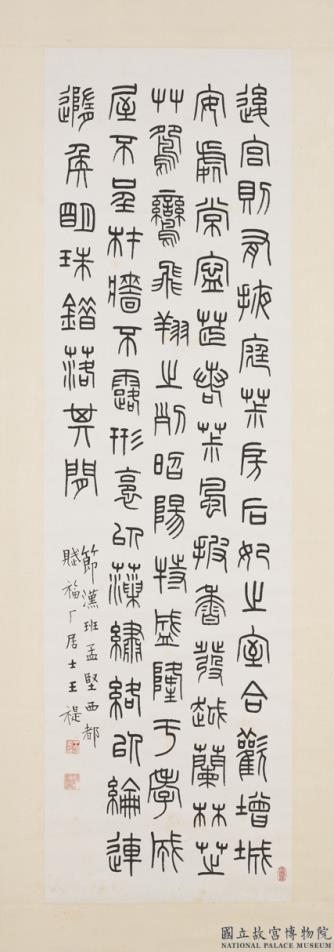 後宮則有掖庭茮房后妃之室合歡增城
安處常寧茝若茮風披香發越蘭林芷
艸鴛鸞飛翔之列昭陽特盛隆乎孝成
屋不呈材牆不露形裛以藻繡絡以綸連
隨侯明珠錯落其間
節漢班孟堅西都
賦福厂居士王禔
國立故宮博物院
NATIONAL PALACE MUSEUM